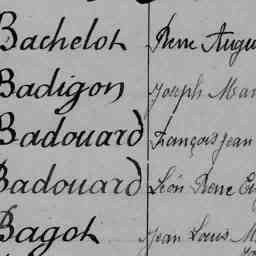 Bachelot Rene Augu
Badigon Joseph Mar
Badouard François Jean
Badouard Léon Rene Eu
Bagot Jean Louis M